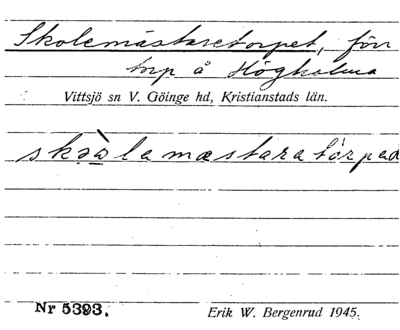 Skolemästaretorpet, förr
torp å Högholma
Vittsjö sn V. Göinge hd, Kristianstads län.
skəàlamæstaratòrpad
Nr 5393.
Erik W. Bergenrud 1945.